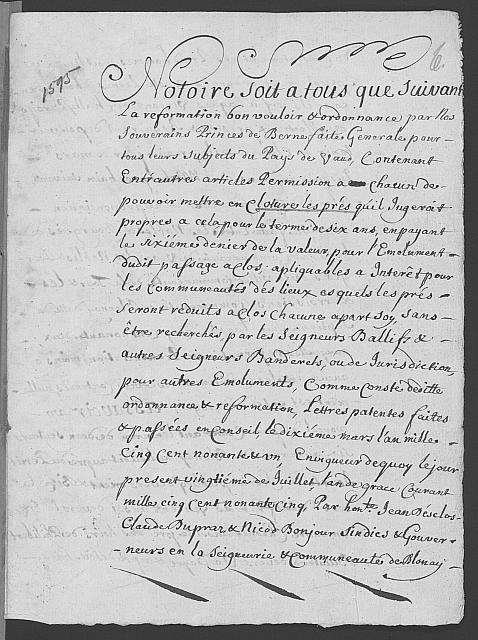 6.
1595
Notoire soit a tous que suivant
La reformation bon vouloir & ordonnance par Nos
Souverains Princes de Berne faite Generale pour-
tous leurs subjects du Paÿs de Vaux, Contenant
Entr'autres articles Permission a chacun de-
pouvoir mettre en Cloture les prés qu'il Jugerait
propres a cela pour le terme de six ans, en payant
le sixiéme denier de la valeur, pour l'Emolument-
dudit passage a clos, apliquables a Interêt pour
les Communeautés des lieux esquels les prés-
Seront reduits a clos Chacune apart soy, sans-
être recherchés, par les Seigneurs Ballifz &-
autres Seigneurs Banderets, ou de Jurisdiction,
pour autres Emoluments, Comme conste de ditte
ordonnance & reformation, Lettres patentes faites
& passées en Conseil, le dixiéme mars l'an mille-
Cinq Cent nonante & un En vigueur de quoy le jour
present vingtiéme de Juillet l'an de grace Courant
mille cinq cent nonante cinq, Par hon.te Jean Desclos-
Claude Dupraz & Nicod Bonjour Sindics & Gouver-
-neurs en la Seigneurie & Communeauté de Blonay